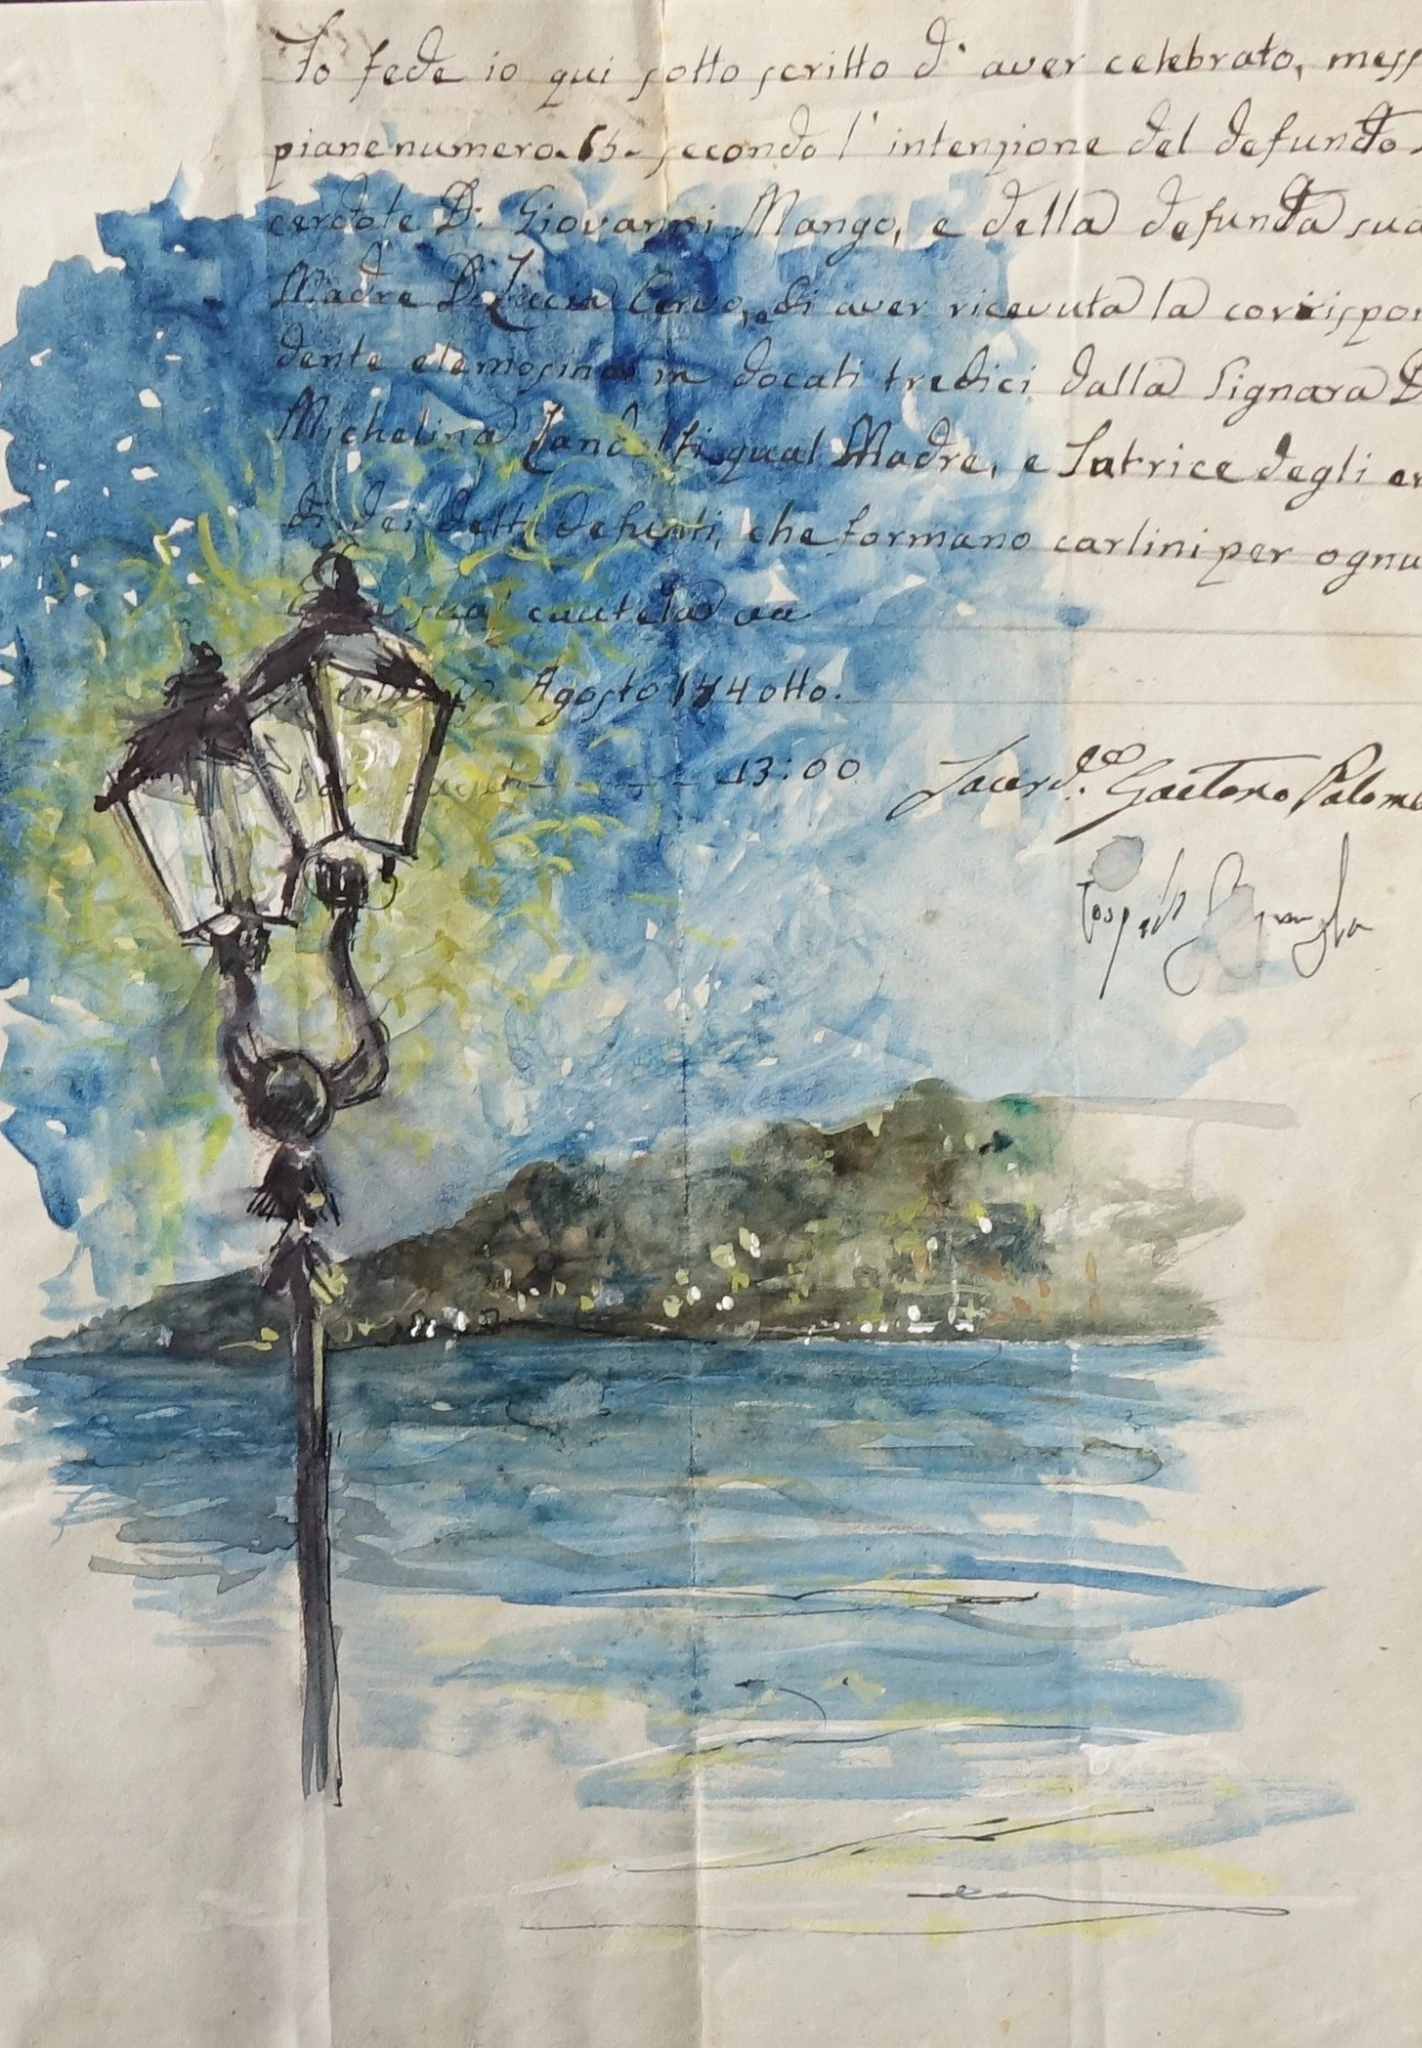 Fo fede io qui sotto scritto d' aver celebrato, mess
piane numero. 65. secondo l' intenzione del defundo
cerdote D: Giovanni Mango, e della defunda sua
Madre D. Lucia Cervo, e di aver ricevuta la corrispon
dente elemosina in docati tredici dalla Signara D
Michelina qual Madre, e Tutrice degli er
di dei detti defunti, che formano carlini per ognu
sua cautela
Agosto 184otto.
13:00 Sacerd. Gaetano Palomb